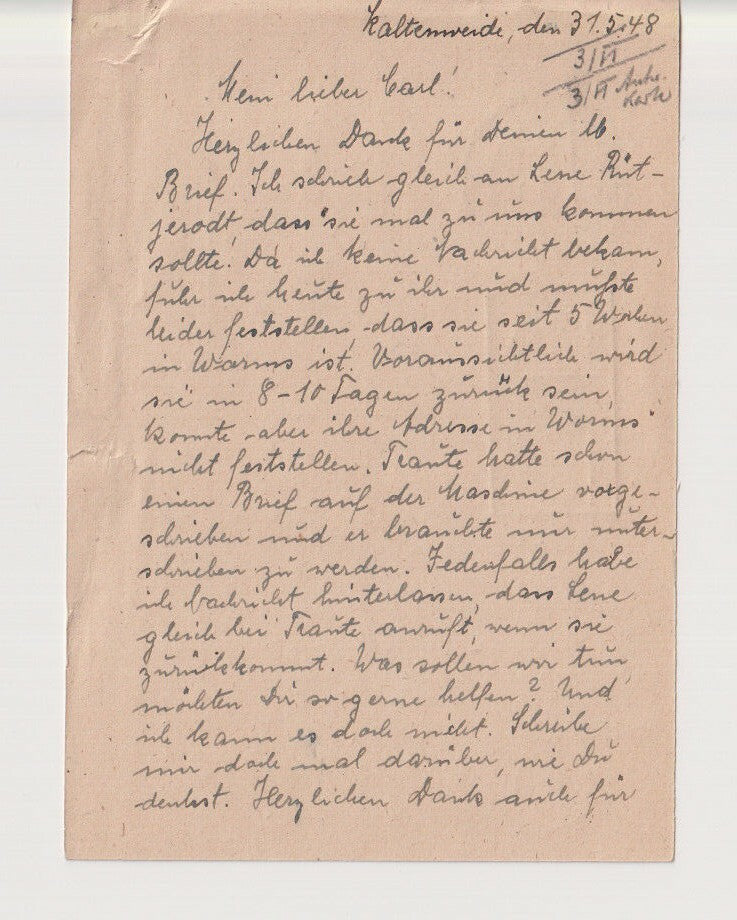 Kaltenweide, den 31.5.48
3/VI
3/VI
Mein lieber Carl!
Herzlichen Dank für Deinen lb.
Brief. Ich schrieb gleich an Lene Rüt-
jerodt, dass sie mal zu uns kommen
sollte. Da ich keine Nachricht bekam,
fuhr ich heute zu ihr und mußte
leider feststellen, dass sie seit 5 Wochen
in Worms ist. Voraussichtlich wird
sie in 8-10 Tagen zurück sein,
konnte aber ihre Adresse in Worms
nicht feststellen. Traute hatte schon
einen Brief auf der Maschine vorge-
schrieben und er brauchte nur unter-
schrieben zu werden. Jedenfalls habe
ich Nachricht hinterlassen, dass Lene
gleich bei Traute anruft, wenn sie
zurückkommt. Was sollen wir tun,
möchten Dir so gerne helfen? Und
ich kann es doch nicht. Schreibe
mir doch mal darüber, wie Du
denkst. Herzlichen Dank auch für